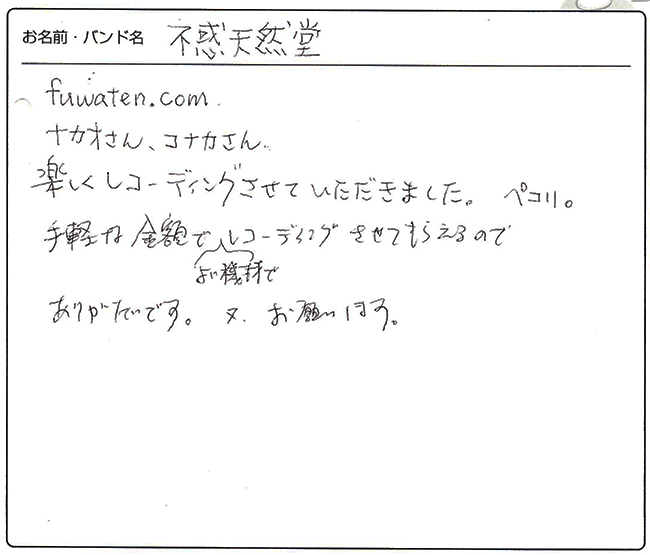 お名前・バンド名 不惑天然堂
fuwaten.com.
ナカオさん、コナカさん.
楽しくレコーディングさせていただきました。 ペコリ。
手軽な金額でレコーディングさせてもらえるので
よい機材で
ありがたいです。 又、お願いします。